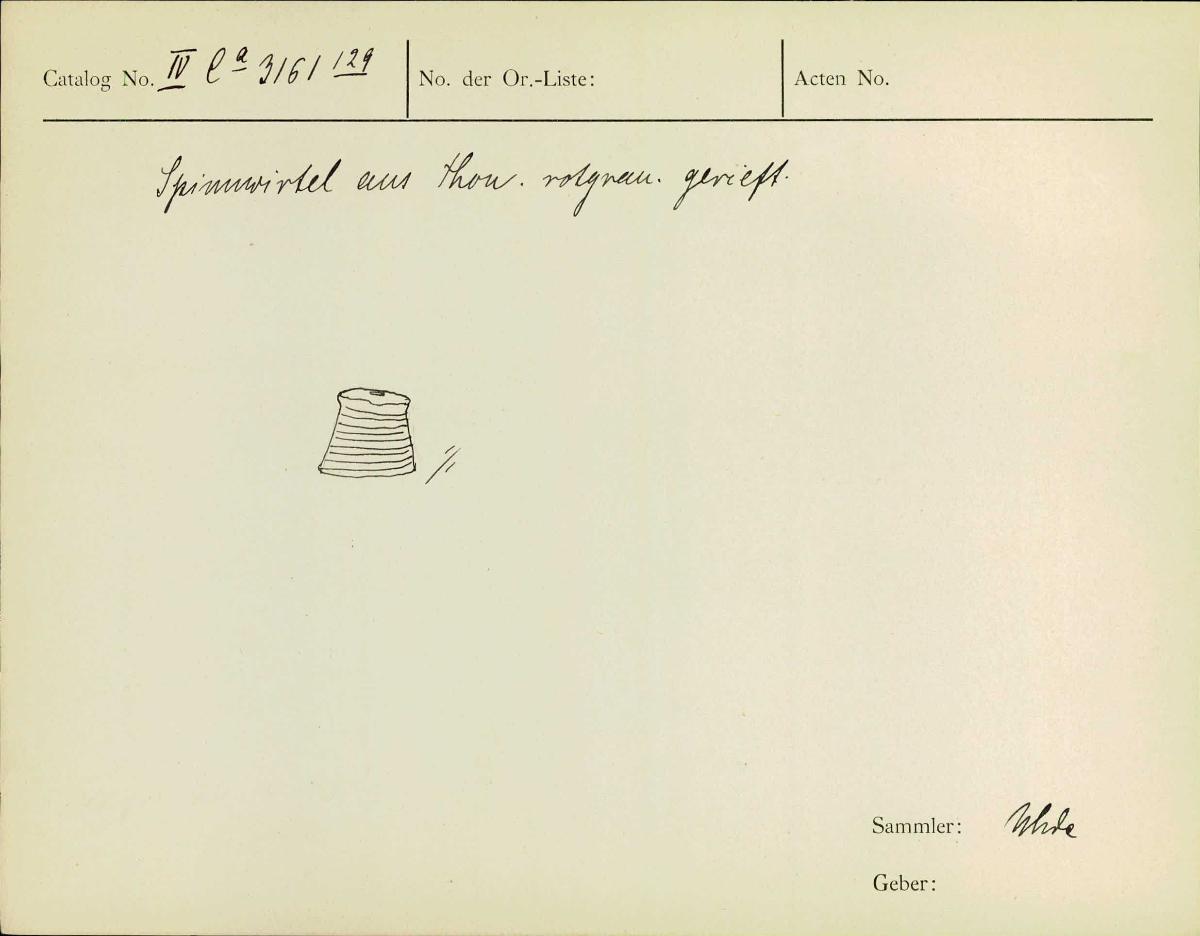 Catalog No. IV Ca 3161 129 No. der Or.-Liste: Acten No.
Spinnwirtel aus Thon. rotgrau. gerieft.
1/1
Sammler: Uhde
Geber: